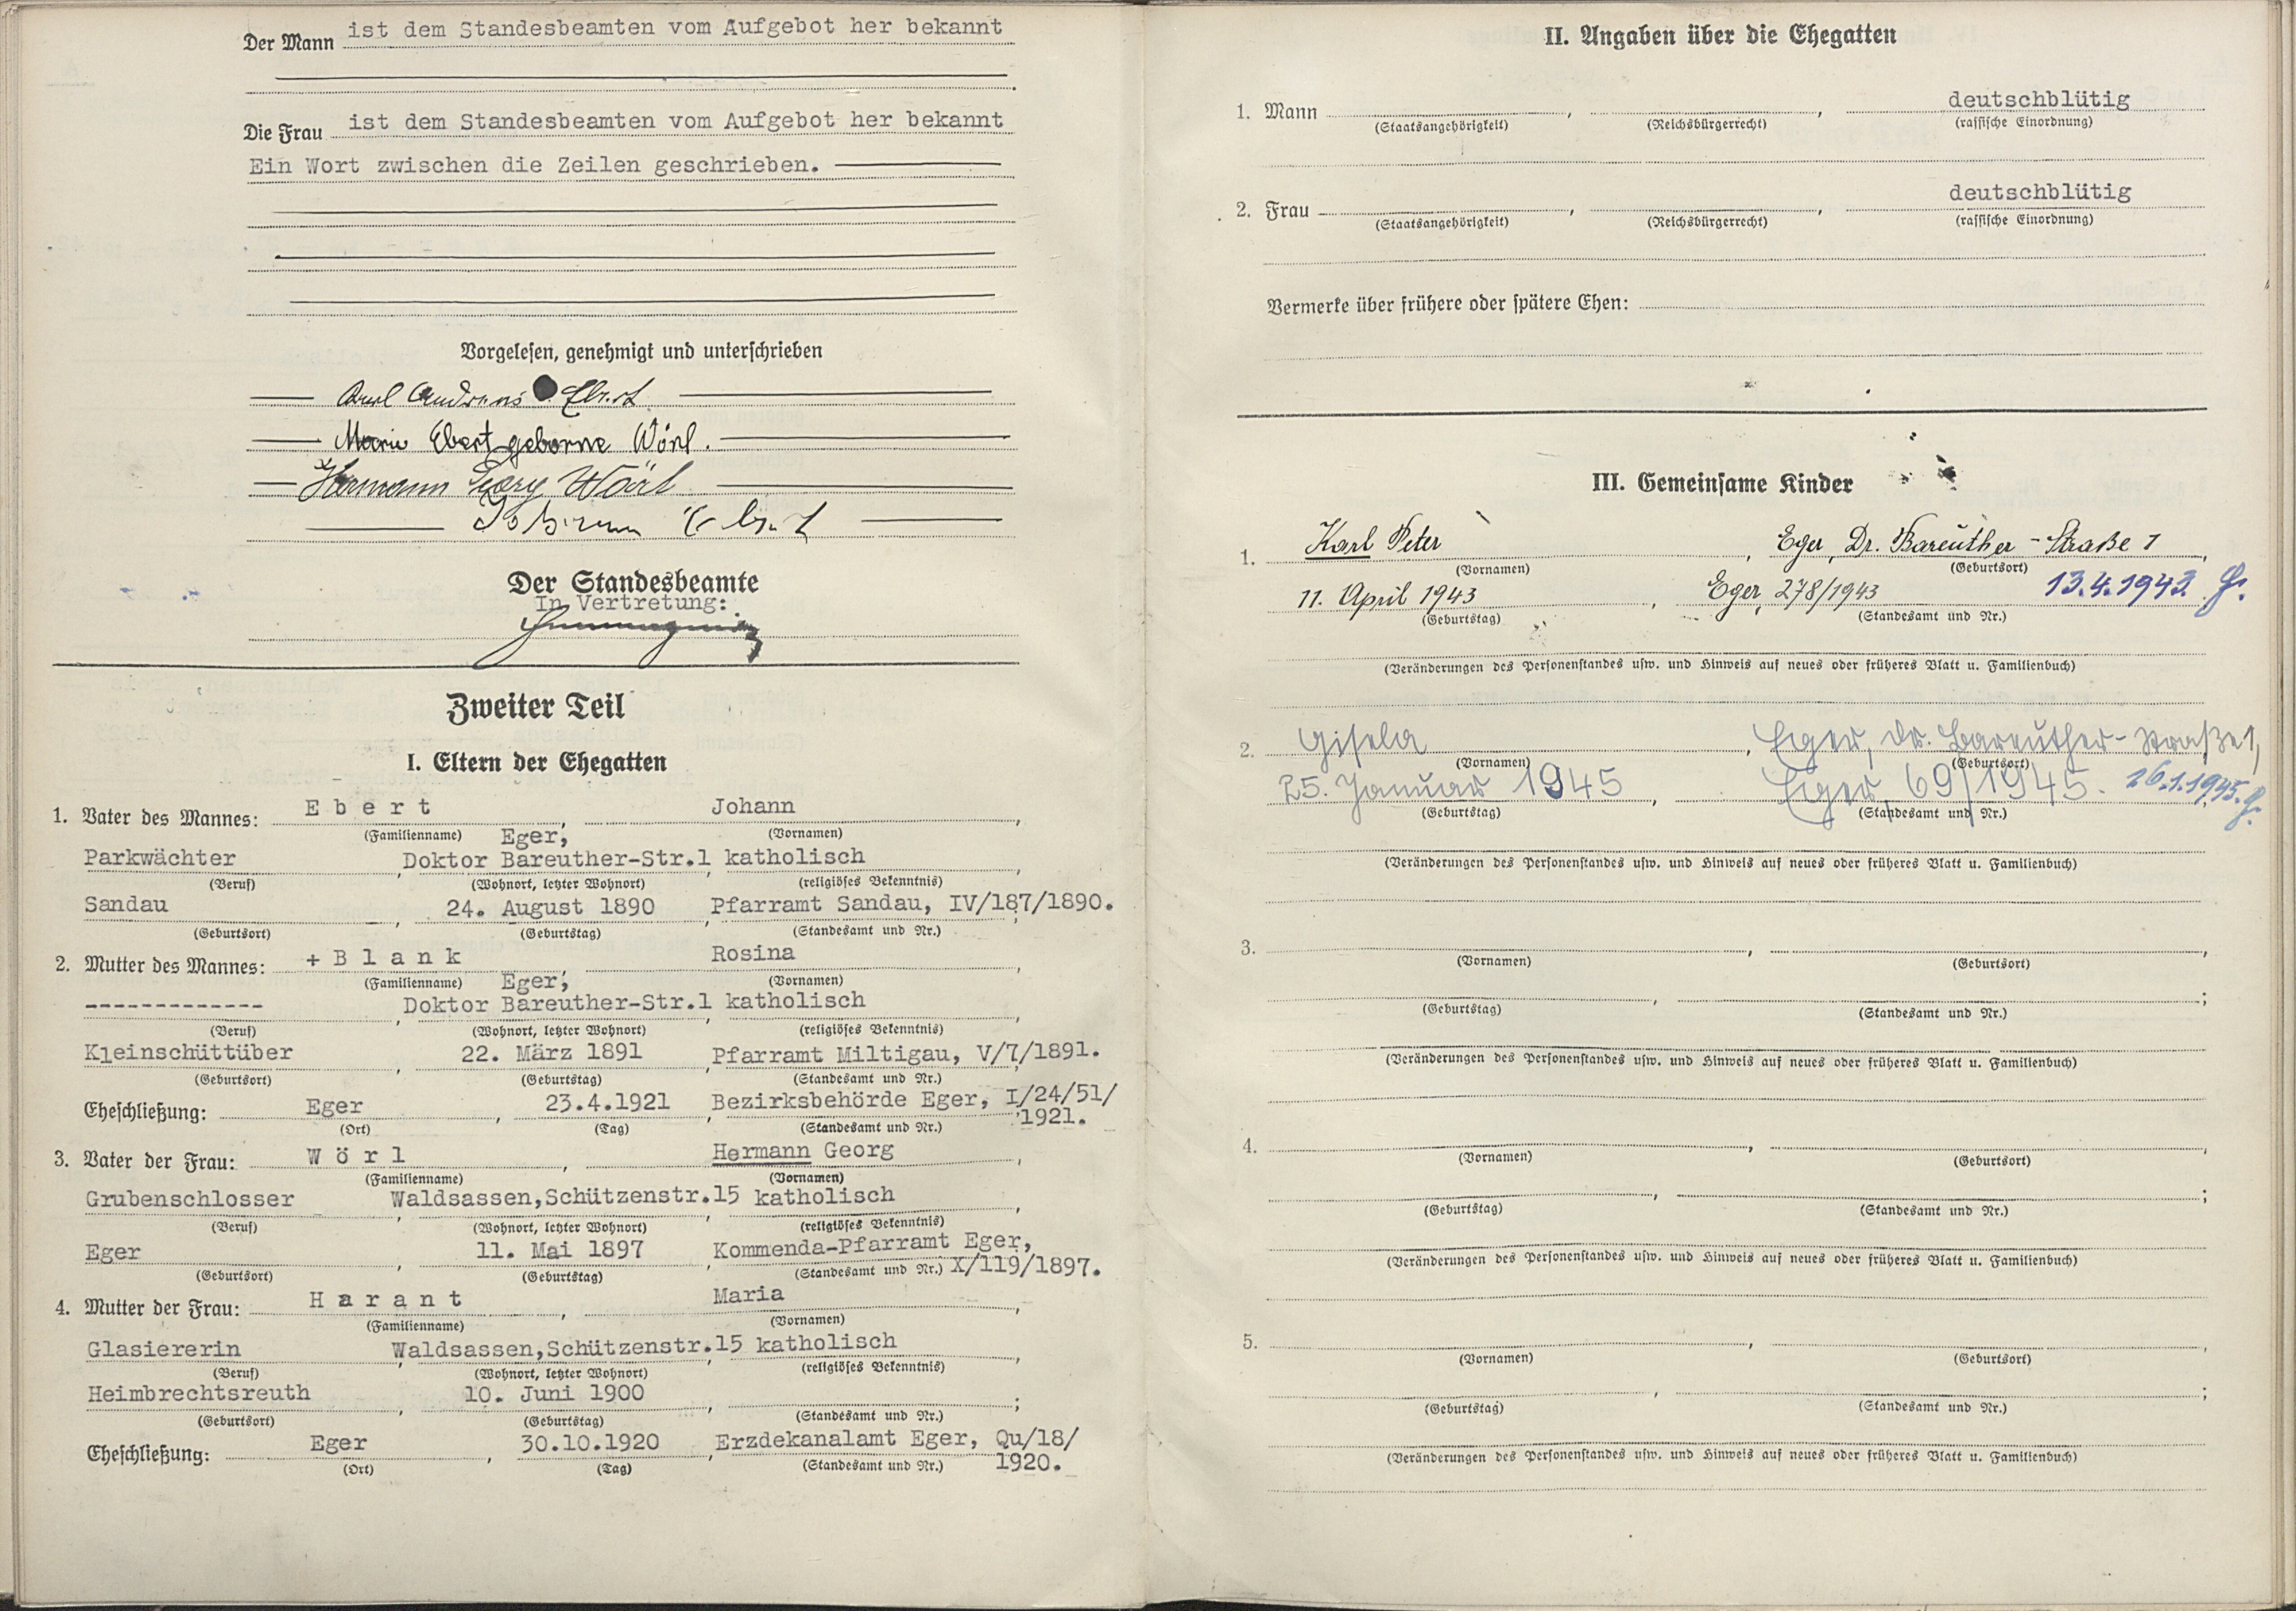 Der Mann ist dem Standesbeamten vom Aufgebot her bekannt
Die Frau ist dem Standesbeamten vom Aufgebot her bekannt
Ein Wort zwischen die Zeilen geschrieben.
Vorgelesen, genehmigt und unterschrieben
Karl Andreas Ebert
Marie Ebert geborne Wörl.
Hermann Georg Wörl
Johann Ebert
Der Standesbeamte
In Vertretung:
Zweiter Teil
I. Eltern der Ehegatten
1. Vater des Mannes: Ebert, Johann,
(Familienname) Eger, (Vornamen)
Parkwächter, Doktor Bareuther-Str.1, katholisch,
(Beruf) (Wohnort, letzter Wohnort) (religiöses Bekenntnis)
Sandau, 24. August 1890, Pfarramt Sandau, IV/187/1890.;
(Geburtsort) (Geburtstag) (Standesamt und Nr.)
2. Mutter des Mannes: +Blank, Rosina,
(Familienname) Eger, (Vornamen)
-------------, Doktor Bareuther-Str.1, katholisch,
(Beruf) (Wohnort, letzter Wohnort) (religiöses Bekenntnis)
Kleinschüttüber, 22. März 1891, Pfarramt Miltigau, V/7/1891.;
(Geburtsort) (Geburtstag) (Standesamt und Nr.)
Eheschließung: Eger, 23.4.1921, Bezirksbehörde Eger, I/24/51/
(Ort) (Tag) (Standesamt und Nr.) 1921.
3. Vater der Frau: Wörl, Hermann Georg,
(Familienname) (Vornamen)
Grubenschlosser, Waldsassen,Schützenstr.15, katholisch,
(Beruf) (Wohnort, letzter Wohnort) (religiöses Bekenntnis)
Eger, 11. Mai 1897, Kommenda-Pfarramt Eger,
(Geburtsort) (Geburtstag) (Standesamt und Nr.) X/119/1897.
4. Mutter der Frau: Harant, Maria,
(Familienname) (Vornamen)
Glasiererin, Waldsassen,Schützenstr.15, katholisch,
(Beruf) (Wohnort, letzter Wohnort) (religiöses Bekenntnis)
Heimbrechtsreuth, 10. Juni 1900, ;
(Geburtsort) (Geburtstag) (Standesamt und Nr.)
Eheschließung: Eger, 30.10.1920, Erzdekanalamt Eger, Qu/18/
(Ort) (Tag) (Standesamt und Nr.) 1920.
II. Angaben über die Ehegatten
1. Mann , , deutschblütig
(Staatsangehörigkeit) (Reichsbürgerrecht) (rassische Einordnung)
2. Frau , , deutschblütig
(Staatsangehörigkeit) (Reichsbürgerrecht) (rassische Einordnung)
Vermerke über frühere oder spätere Ehen:
III. Gemeinsame Kinder
1. Karl Peter, Eger, Dr. Bareuther-Straße 1,
(Vornamen) (Geburtsort)
11. April 1943, Eger, 278/1943 13.4.1943.
(Geburtstag) (Standesamt und Nr.)
(Veränderungen des Personenstandes usw. und Hinweis auf neues oder früheres Blatt u. Familienbuch)
2. Gisela, Eger, Dr. Bareuther-Straße 1,
(Vornamen) (Geburtsort)
25. Januar 1945, Eger, 69/1945. 26.1.1945.
(Geburtstag) (Standesamt und Nr.)
(Veränderungen des Personenstandes usw. und Hinweis auf neues oder früheres Blatt u. Familienbuch)
3. , ,
(Vornamen) (Geburtsort)
, ;
(Geburtstag) (Standesamt und Nr.)
(Veränderungen des Personenstandes usw. und Hinweis auf neues oder früheres Blatt u. Familienbuch)
4. , ,
(Vornamen) (Geburtsort)
, ;
(Geburtstag) (Standesamt und Nr.)
(Veränderungen des Personenstandes usw. und Hinweis auf neues oder früheres Blatt u. Familienbuch)
5. , ,
(Vornamen) (Geburtsort)
, ;
(Geburtstag) (Standesamt und Nr.)
(Veränderungen des Personenstandes usw. und Hinweis auf neues oder früheres Blatt u. Familienbuch)